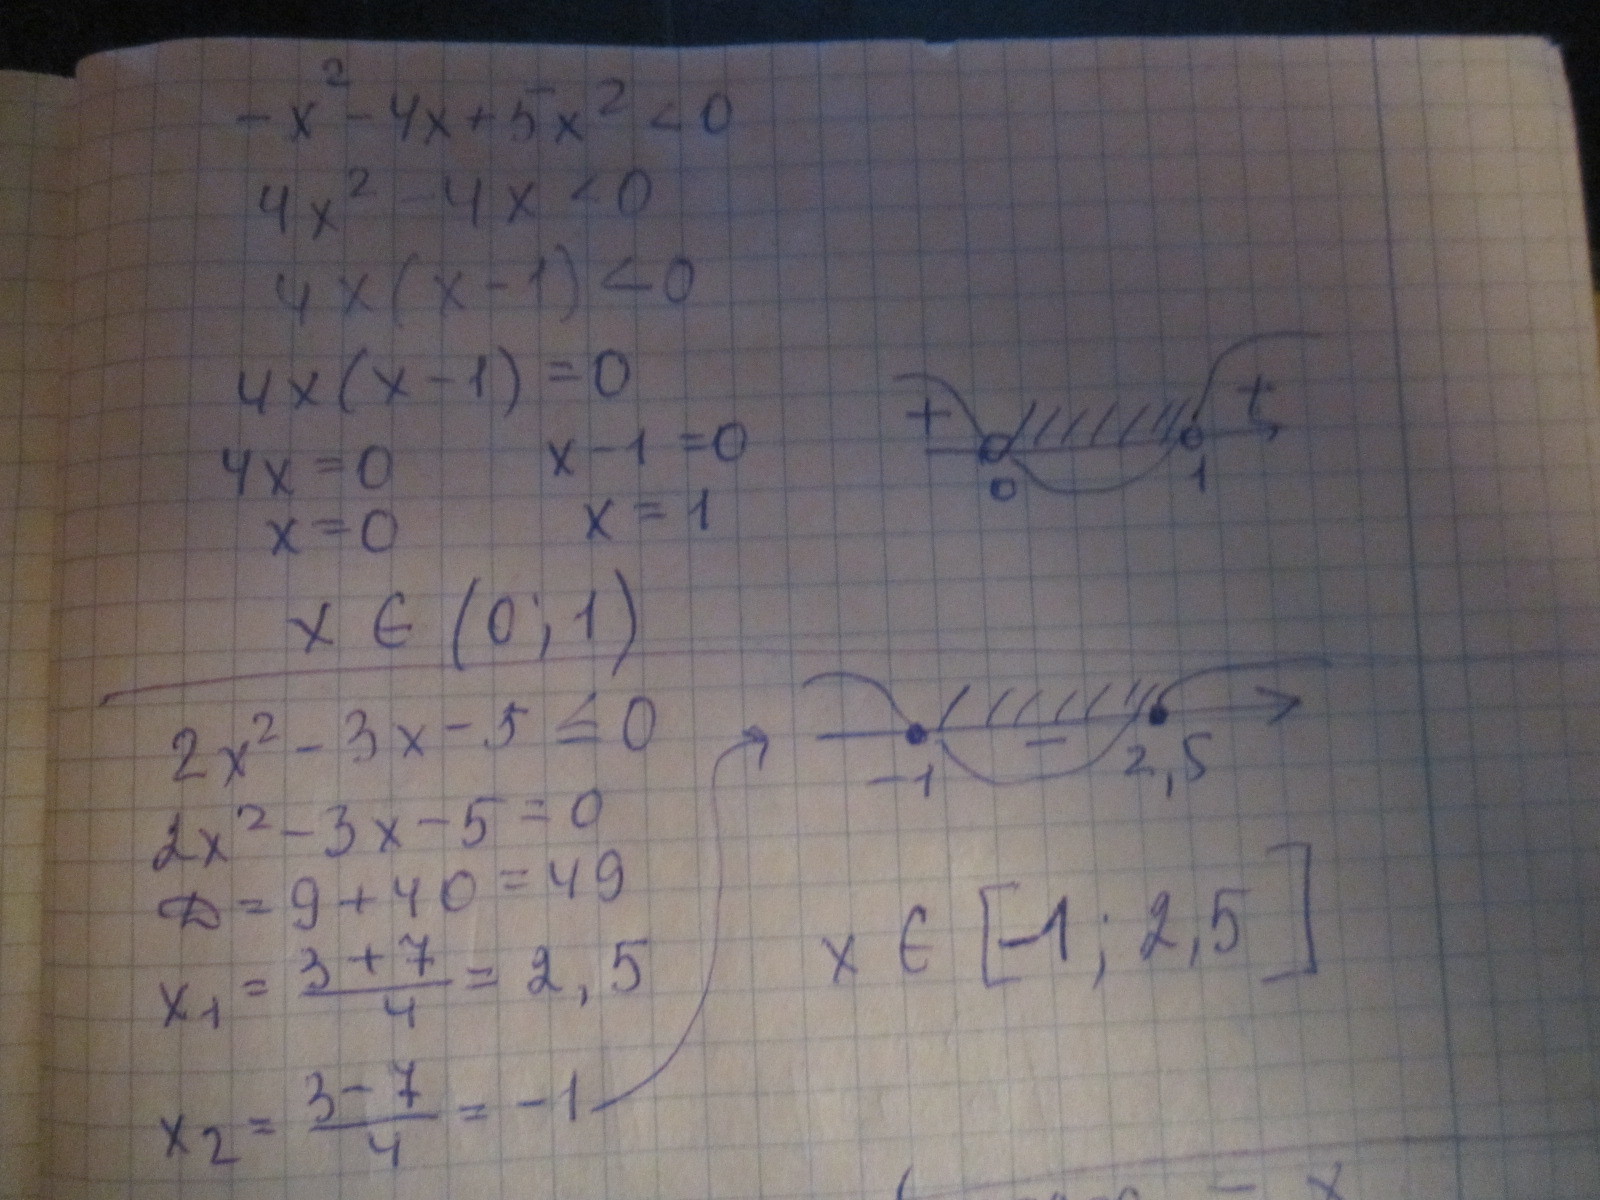 -x² - 4x + 5x² < 0
4x² - 4x < 0
4x(x-1) < 0
4x(x-1) = 0
4x = 0 x-1 = 0
x = 0 x = 1
+ +
0 1
x ∈ (0; 1)
2x² - 3x - 5 ≤ 0
2x² - 3x - 5 = 0
D = 9 + 40 = 49
x₁ = (3+7)/4 = 2,5
x₂ = (3-7)/4 = -1
-
-1 2,5
x ∈ [-1; 2,5]